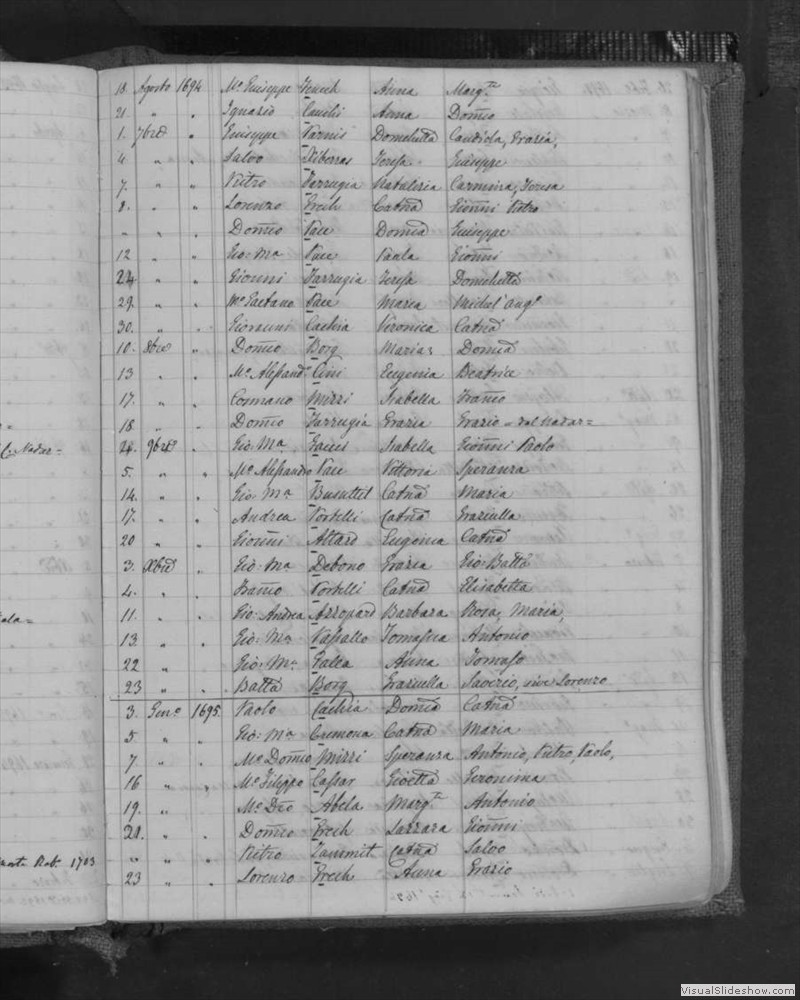 18. Agosto 1694 Mº Giuseppe Zeuech Anna Marg.ta
21. " " Ignazio Camilli Anna Domco
1. 7bre " Giuseppe Parnis Domchetta Candida, Grazia,
4 " " Salvo Xiberras Teresa Giuseppe
7. " " Pietro Farrugia Natalizia Carmoira, Teresa
8. " " Lorenzo Grech Catna Gionni Pietro
" " " Domco Pace Domca Giuseppe
12 " " Gio: Ma Pace Paola Gionni
24 " " Gionni Farrugia Teresa Domchetta
29. " " Mº Gaetano Pace Maria Michel' Angº
30. " " Giovanni Cachia Veronica Catna
10. 8bre " Domco Borg Maria Domca
13 " " Mº Alessand Cini Eugenia Beatrice
17. " " Cosmano Mizzi Isabella
18 " " Domco Farrugia Grazia Grazio = dal Nadar =
24. 9bre " Gio: Ma Gauci Isabella Gionni Paolo
5. " " Mº Alessandro Pace Vittoria Speranza
14. " " Gio: Ma Busuttil Catna Maria
17. " " Andrea Portelli Catna Graziulla
20 " " Gionni Attard Eugenia Catna
3. Xbre " Gio: Ma Debono Grazia Gio: Batta
4. " " Portelli Catna Elisabetta
11. " " Gio: Andrea Azzopard Barbara Rosa, Maria,
13. " " Gio: Ma Vassallo Tomasica Antonio
22 " " Gio: Ma Galea Anna Tomaso
23 " " Batta Borg Graziulla Saverio, sive Lorenzo
3. Genº 1695. Paolo Cachia Domca Catna
5 " " Gio: Ma Cremona Catna Maria
7 " " Mº Domco Mizzi Speranza Antonio, Pietro, Paolo,
16 " " Mº Filippo Cassar Gioetta Geronima
19. " " Mº Abela Marg.ta Antonio
21. " " Domco Grech Sarrara Gionni
" " " Pietro Zammit Catna Salvo
23 " " Lorenzo Grech Anna Grazio
VisualSlideshow.com